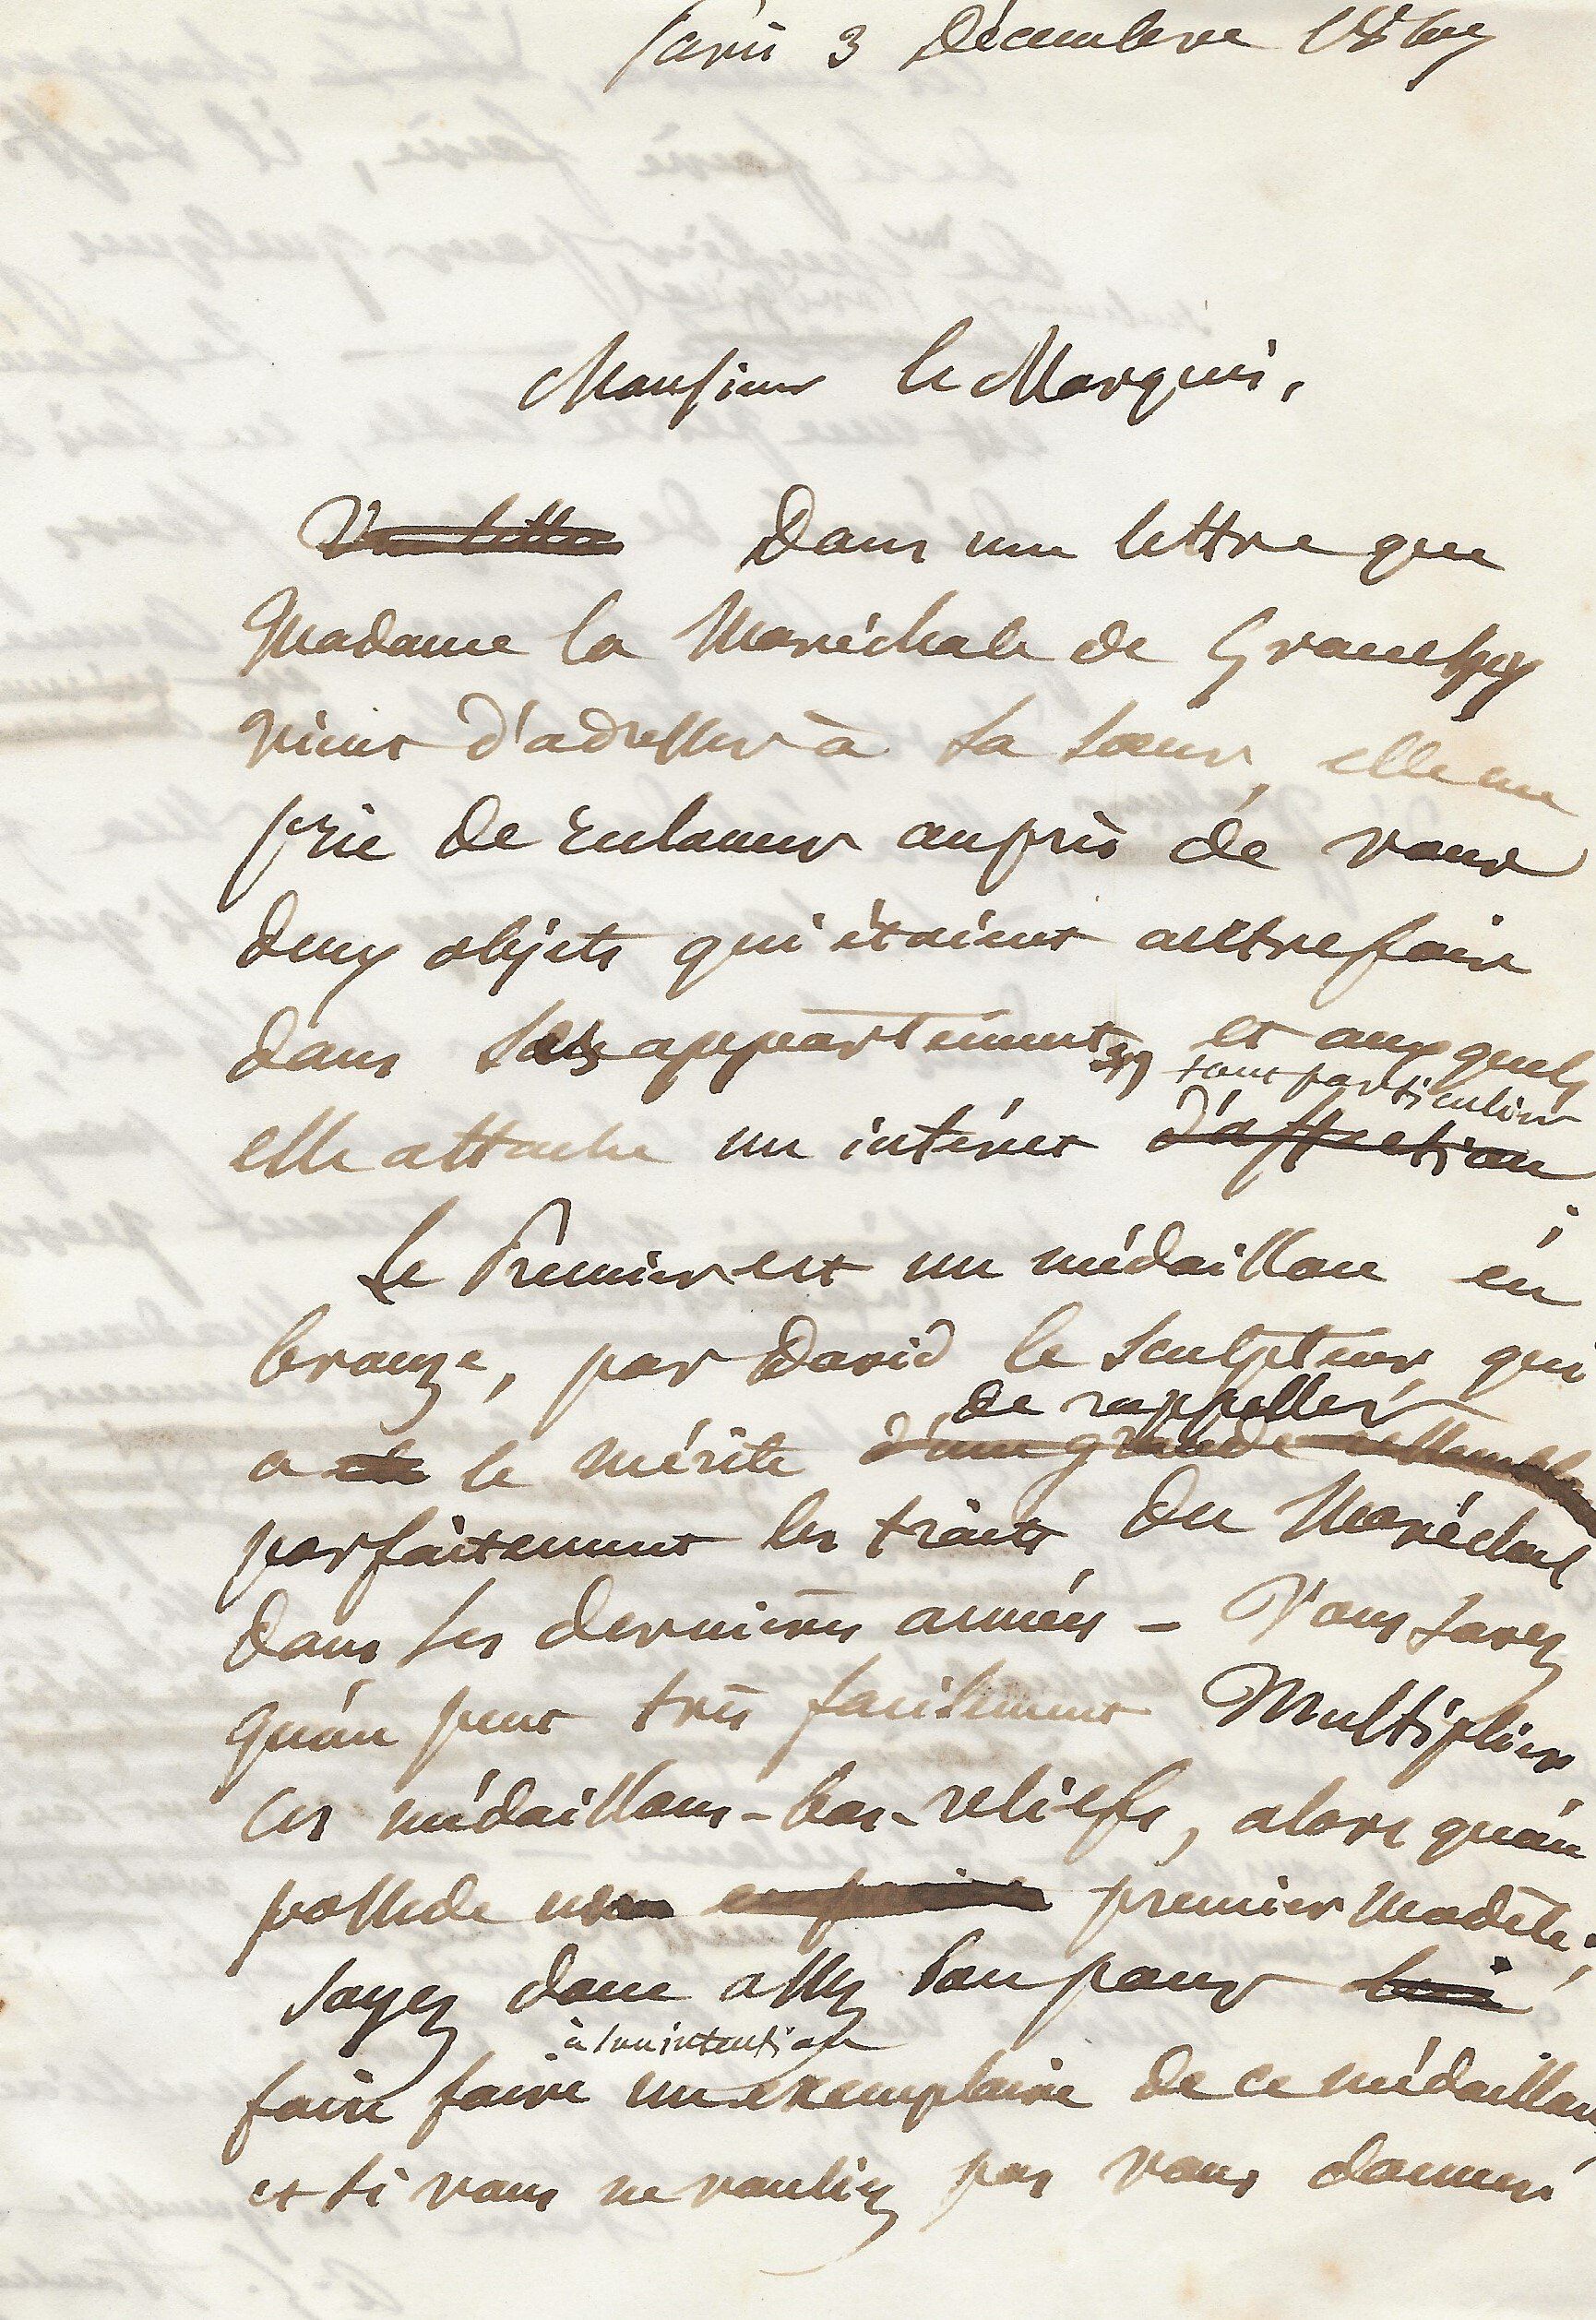 Paris 3 Décembre 186
Monsieur le Marquis,
Dans une lettre que
Madame la Maréchale de Grouchy
vient d'adresser à sa sœur, elle me
prie de réclamer auprès de vous
deux objets qui étaient autrefois
dans ses appartements, et auxquels
tout particulier
elle attache un intérêt d'affection ;
Le Premier est un médaillon en
bronze, par David le sculpteur, qui
de rappeller
a le mérite d'une grande ressemblance
parfaitement les traits du Maréchal
dans ses dernières années – Vous savez
qu'on peut très facilement Multiplier
ces médaillons-bas-reliefs, alors qu'on
possede un premier modèle ;
soyez donc assez bon pour lui
à son intention
faire faire un exemplaire de ce médaillon
et si vous ne vouliez pas vous donner